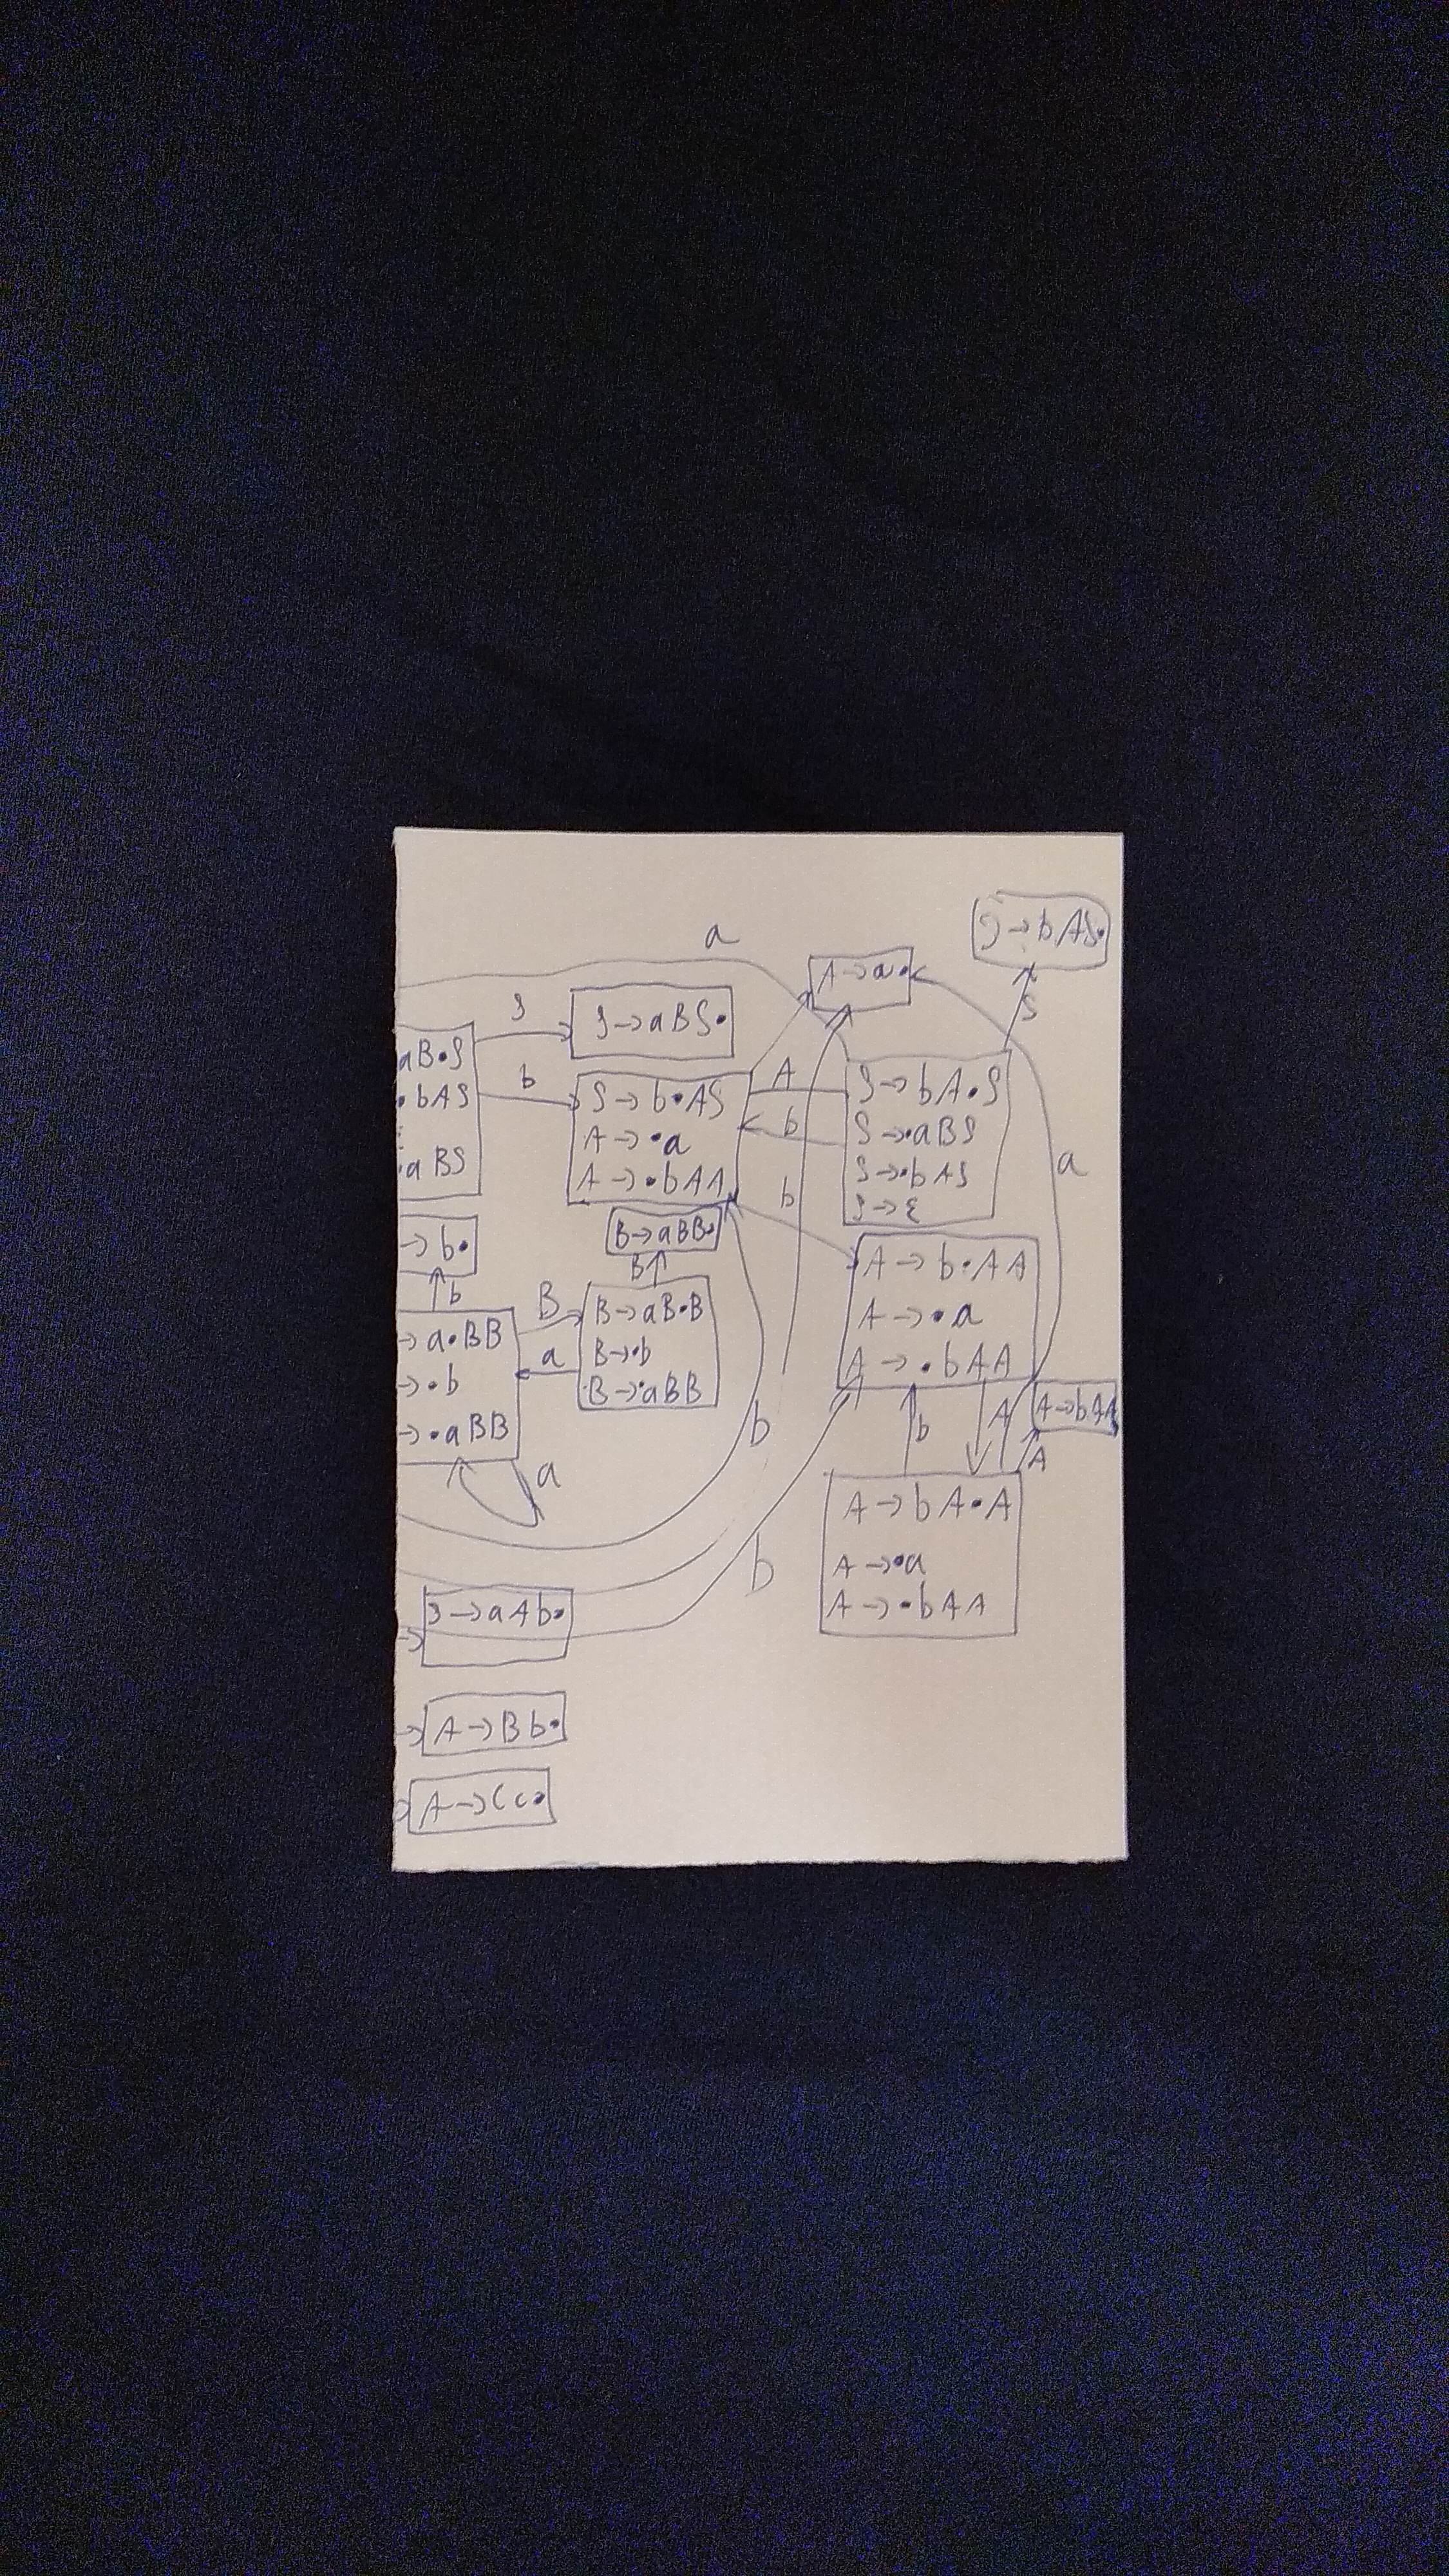 a
S→bAS•
A→a•
S
S→aBS•
S
aB•S
•bAS
•aBS
b
S→b•AS
A→•a
A→•bAA
A
b
S→bA•S
S→•aBS
S→•bAS
S→ε
a
b
→b•
b
B→aBB•
B
A→b•AA
A→•a
A→•bAA
→a•BB
→•b
→•aBB
B
a
B→aB•B
B→•b
B→•aBB
a
b
b
A
A→bAA
A
A→bA•A
A→•a
A→•bAA
b
S→aAb•
A→Bb•
A→Cc•